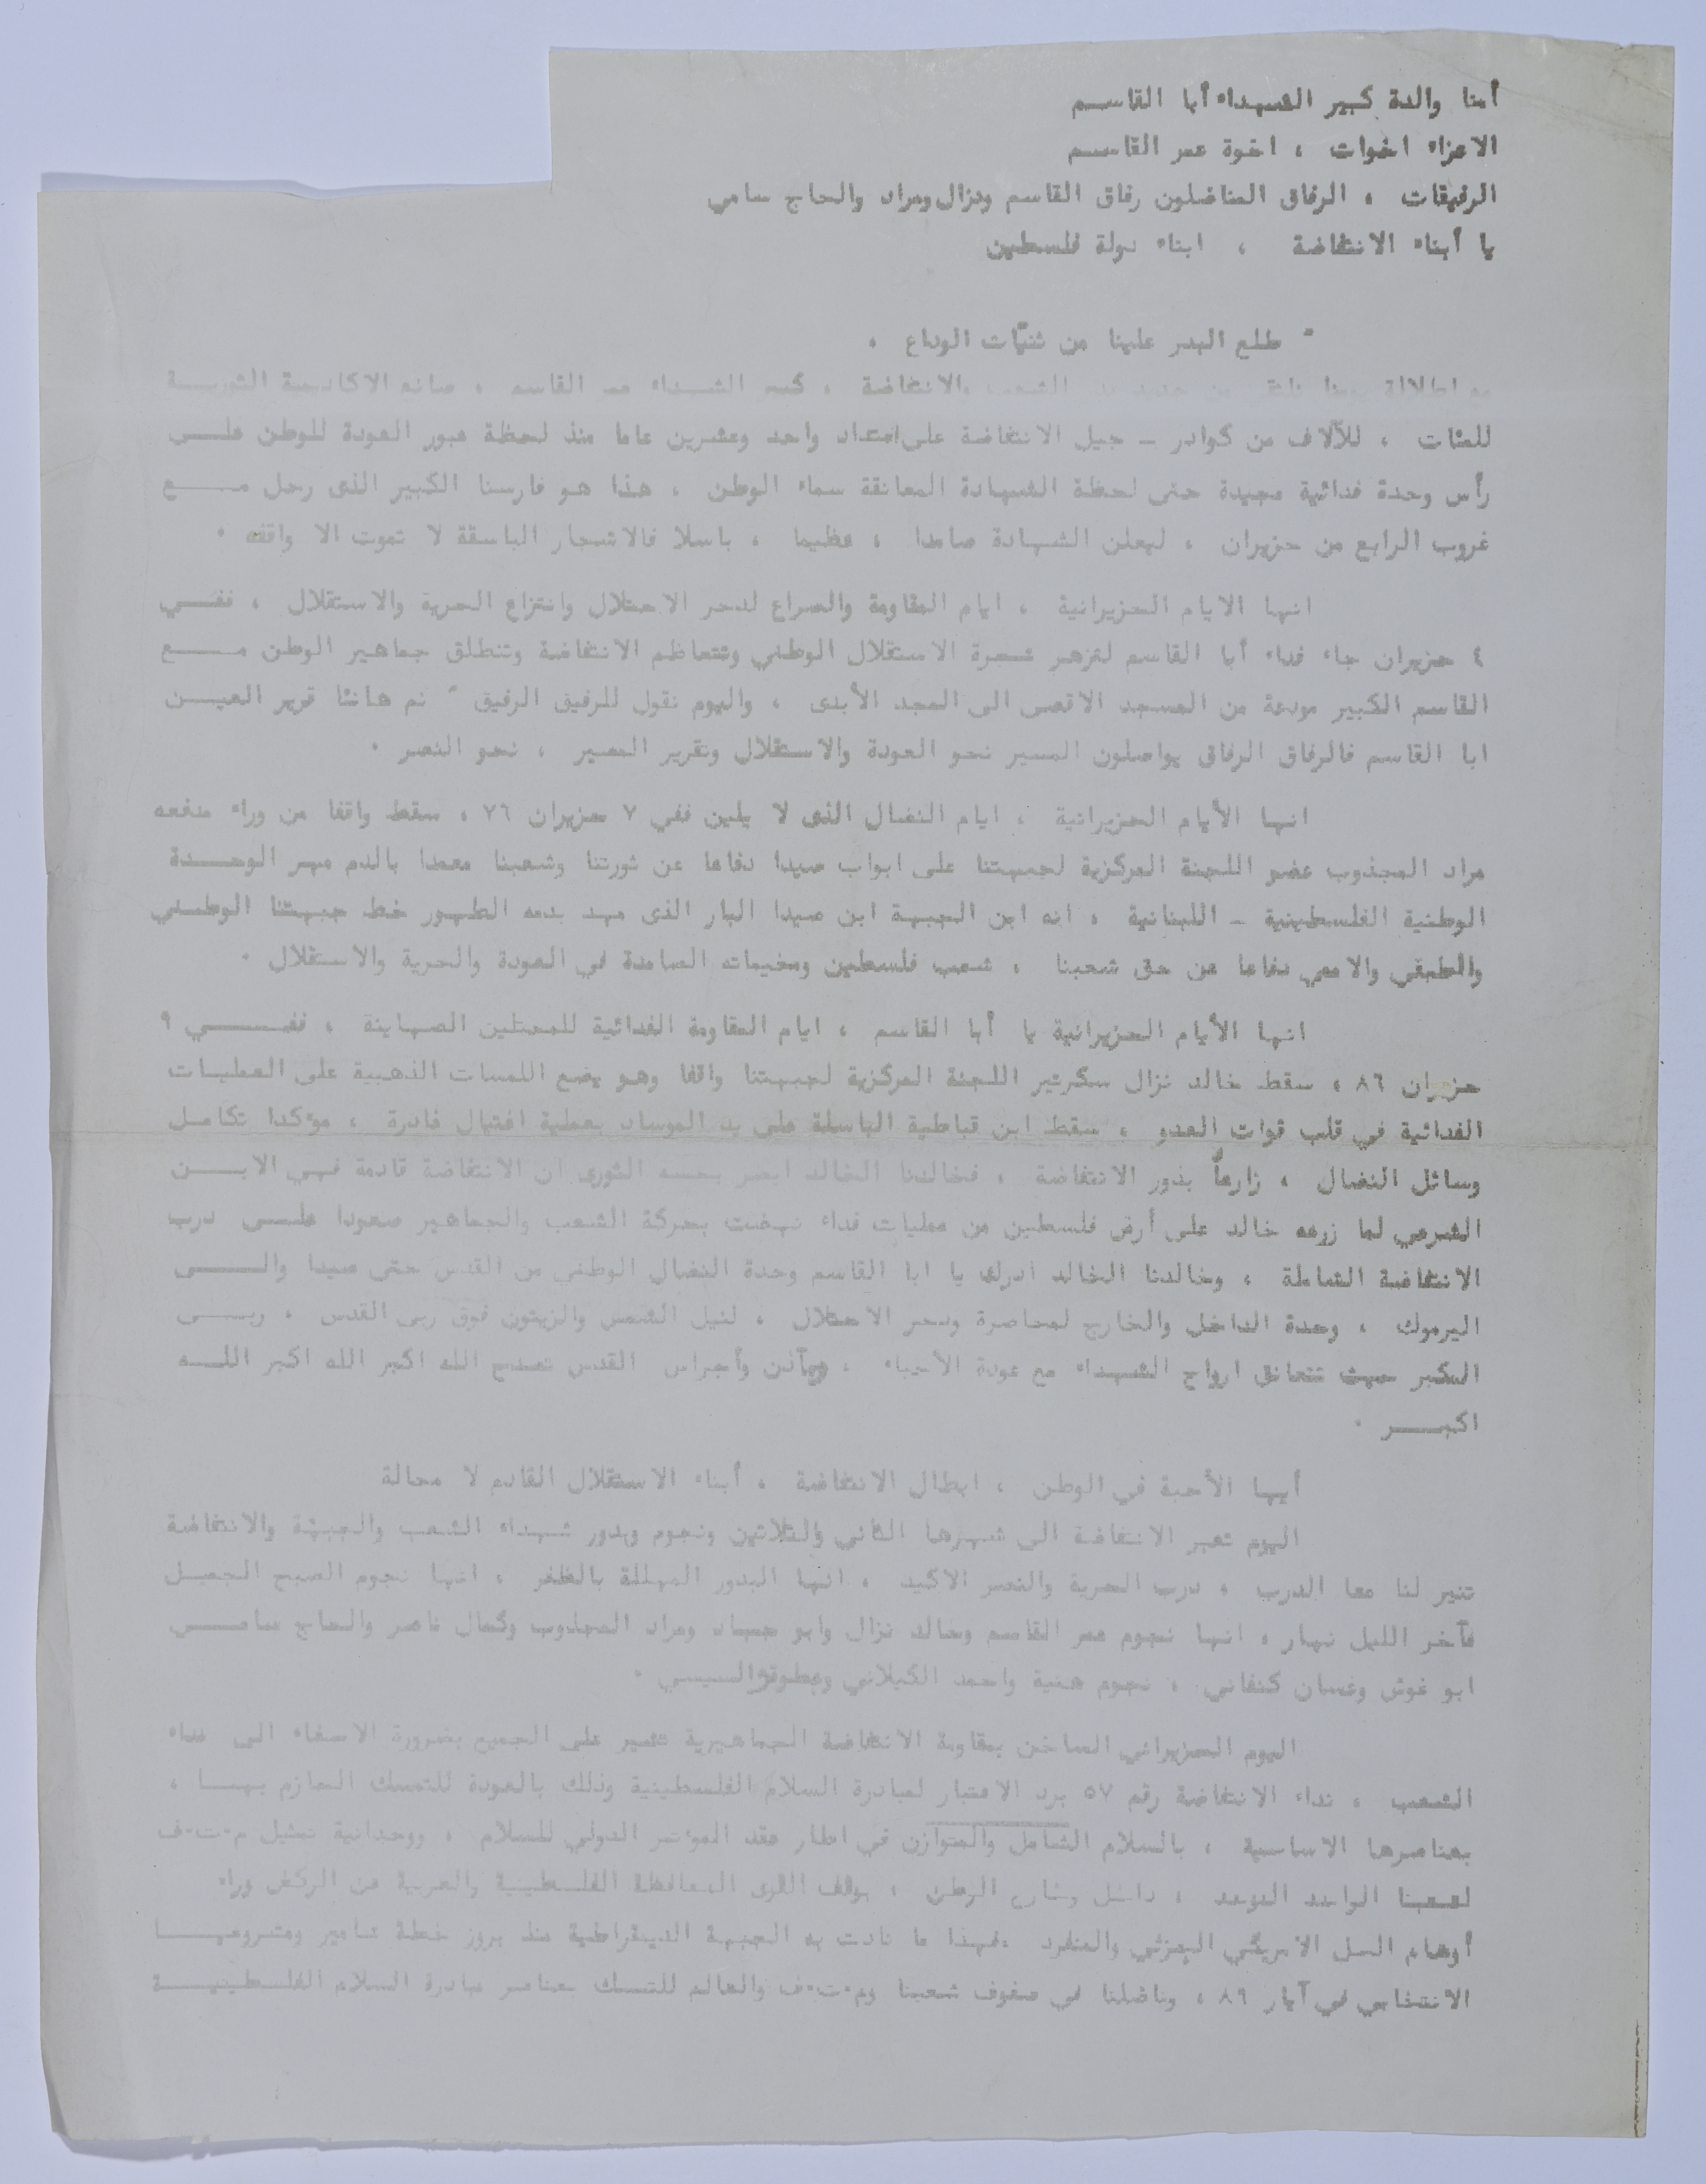 أمنا والدة كبير الشهداء أبا القاسم
الاعزاء اخوات ، اخوة عمر القاسم
الرفيقات ، الرفاق المناضلون رفاق القاسم ونزال ومراد والحاج سامي
يا أبناء الانتفاضة ، ابناء دولة فلسطين
" طلع البدر علينا من ثنيّات الوداع .
مع اطلالة من جديد الشعب والانتفاضة ، كبير الشهداء عمر القاسم ، صانع الاكاديمية الثورية
للمئات ، للآلاف من كوادر - جيل الانتفاضة على امتداد واحد وعشرين عاما منذ لحظة عبور العودة للوطن على
رأس وحدة فدائية مجيدة حتى لحظة الشهادة المعانقة سماء الوطن ، هذا هو فارسنا الكبير الذى رحل مع
غروب الرابع من حزيران ، ليعلن الشهادة صامدا ، عظيما ، باسلا فالاشجار الباسقة لا تموت الا واقفه .
انها الايام الحزيرانية ، ايام المقاومة والصراع لدحر الاحتلال وانتزاع الحرية والاستقلال ، ففي
٤ حزيران جاء فداء أبا القاسم لتزهر شجرة الاستقلال الوطني وتتعاظم الانتفاضة وتنطلق جماهير الوطن مع
القاسم الكبير مودعة من المسجد الاقصى الى المجد الأبدى ، واليوم نقول للرفيق الرفيق " نم هانئا قرير العين
ابا القاسم فالرفاق الرفاق يواصلون المسير نحو العودة والاستقلال وتقرير المصير ، نحو النصر .
انها الأيام الحزيرانية ، ايام النضال الذى لا يلين ففي ٧ حزيران ٧٦ ، سقط واقفا من وراء مدفعه
مراد المجذوب عضو اللجنة المركزية لجبهتنا على ابواب صيدا دفاعا عن ثورتنا وشعبنا معمدا بالدم مهر الوحدة
الوطنية الفلسطينية - اللبنانية ، انه ابن الجبهة ابن صيدا البار الذى مهد بدمه الطهور خط جبهتنا الوطني
والطبقي والاممي دفاعا عن حق شعبنا ، شعب فلسطين ومخيماته الصامدة في العودة والحرية والاستقلال .
انها الأيام الحزيرانية يا أبا القاسم ، ايام المقاومة الفدائية للمحتلين الصهاينة ، ففي ٩
حزيران ٨٦ ، سقط خالد نزال سكرتير اللجنة المركزية لجبهتنا واقفا وهو يضع اللمسات الذهبية على العمليات
الفدائية في قلب قوات العدو ، سقط ابن قباطية الباسلة على يد الموساد بعملية اغتيال غادرة ، مؤكدا تكامل
وسائل النضال ، زارعاً بذور الانتفاضة ، فخالدنا الخالد ابصر بحسه الثورى ان الانتفاضة قادمة فهي الابن
الشرعي لما زرعه خالد على أرض فلسطين من عمليات فداء نهضت بحركة الشعب والجماهير صعودا على درب
الانتفاضة الشاملة ، وخالدنا الخالد ادرك يا ابا القاسم وحدة النضال الوطني من القدس حتى صيدا والى
اليرموك ، وحدة الداخل والخارج لمحاصرة ودحر الاحتلال ، لنيل الشمس والزيتون فوق ربى القدس ، ربى
المكبر حيث تتعانق ارواح الشهداء مع عودة الأحياء ، ومآذن وأجراس القدس تصدح الله اكبر الله اكبر الله
اكبر .
أيها الأحبة في الوطن ، ابطال الانتفاضة ، أبناء الاستقلال القادم لا محالة
اليوم تعبر الانتفاضة الى شهرها الثاني والثلاثين ونجوم وبدور شهداء الشعب والجبهة والانتفاضة
تنير لنا معا الدرب ، درب الحرية والنصر الاكيد ، انها البدور المهللة بالظفر ، انها نجوم الصبح الجميل
فآخر الليل نهار ، انها نجوم عمر القاسم وخالد نزال وابو جهاد ومراد المجذوب وكمال ناصر والحاج سامي
ابو غوش وغسان كنفاني ، نجوم هنية واحمد الكيلاني وعطوة السيسي .
اليوم الحزيراني الساخن بمقاومة الانتفاضة الجماهيرية تشير على الجميع بضرورة الاصغاء الى نداء
الشعب ، نداء الانتفاضة رقم ٥٧ برد الاعتبار لمبادرة السلام الفلسطينية وذلك بالعودة للتمسك الحازم بها ،
بعناصرها الاساسية ، بالسلام الشامل والمتوازن في اطار عقد المؤتمر الدولي للسلام ، ووحدانية تمثيل م٠ت٠ف
لشعبنا الواحد الموحد ، داخل وخارج الوطن ، بوقف القوى المحافظة الفلسطينية والعربية عن الركض وراء
أوهام الحل الامريكي الجزئي والمنفرد ، فهذا ما نادت به الجبهة الديمقراطية منذ بروز خطة شامير ومشروعها
الانتخابي في آيار ٨٩ ، وناضلنا في صفوف شعبنا وم٠ت٠ف والعالم للتمسك بعناصر مبادرة السلام الفلسطينية